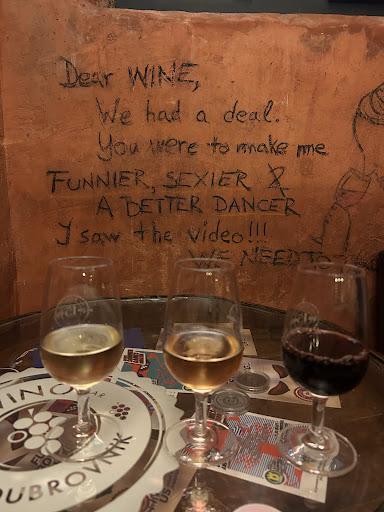 Dear WINE,
We had a deal.
You were to make me
FUNNIER, SEXIER &
A BETTER DANCER
I saw the video!!!
WE NEED TO
VINO
BAR
DUBROVNIK